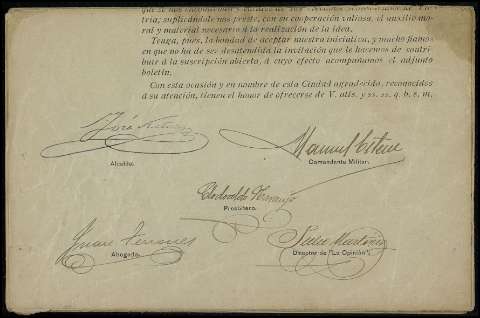 tria; suplicándole nos preste, con su cooperación valiosa, el auxilio mo-
ral y material necesario á la realización de la idea.
Tenga, pues, la bondad de aceptar nuestra iniciativa, y mucho fiamos
en que no ha de ser desatendida la invitación que le hacemos de contri-
buir á la suscripción abierta, á cuyo efecto acompañamos el adjunto
boletín.
Con esta ocasión y en nombre de esta Ciudad agradecida, reconocidos
á su atención, tienen el honor de ofrecerse de V. atts. y ss. ss. q. b. s. m.
José
Manuel
Alcalde.
Comandante Militar.
Presbítero.
Juan
Abogado.
Martínez
Director de "La Opinión".